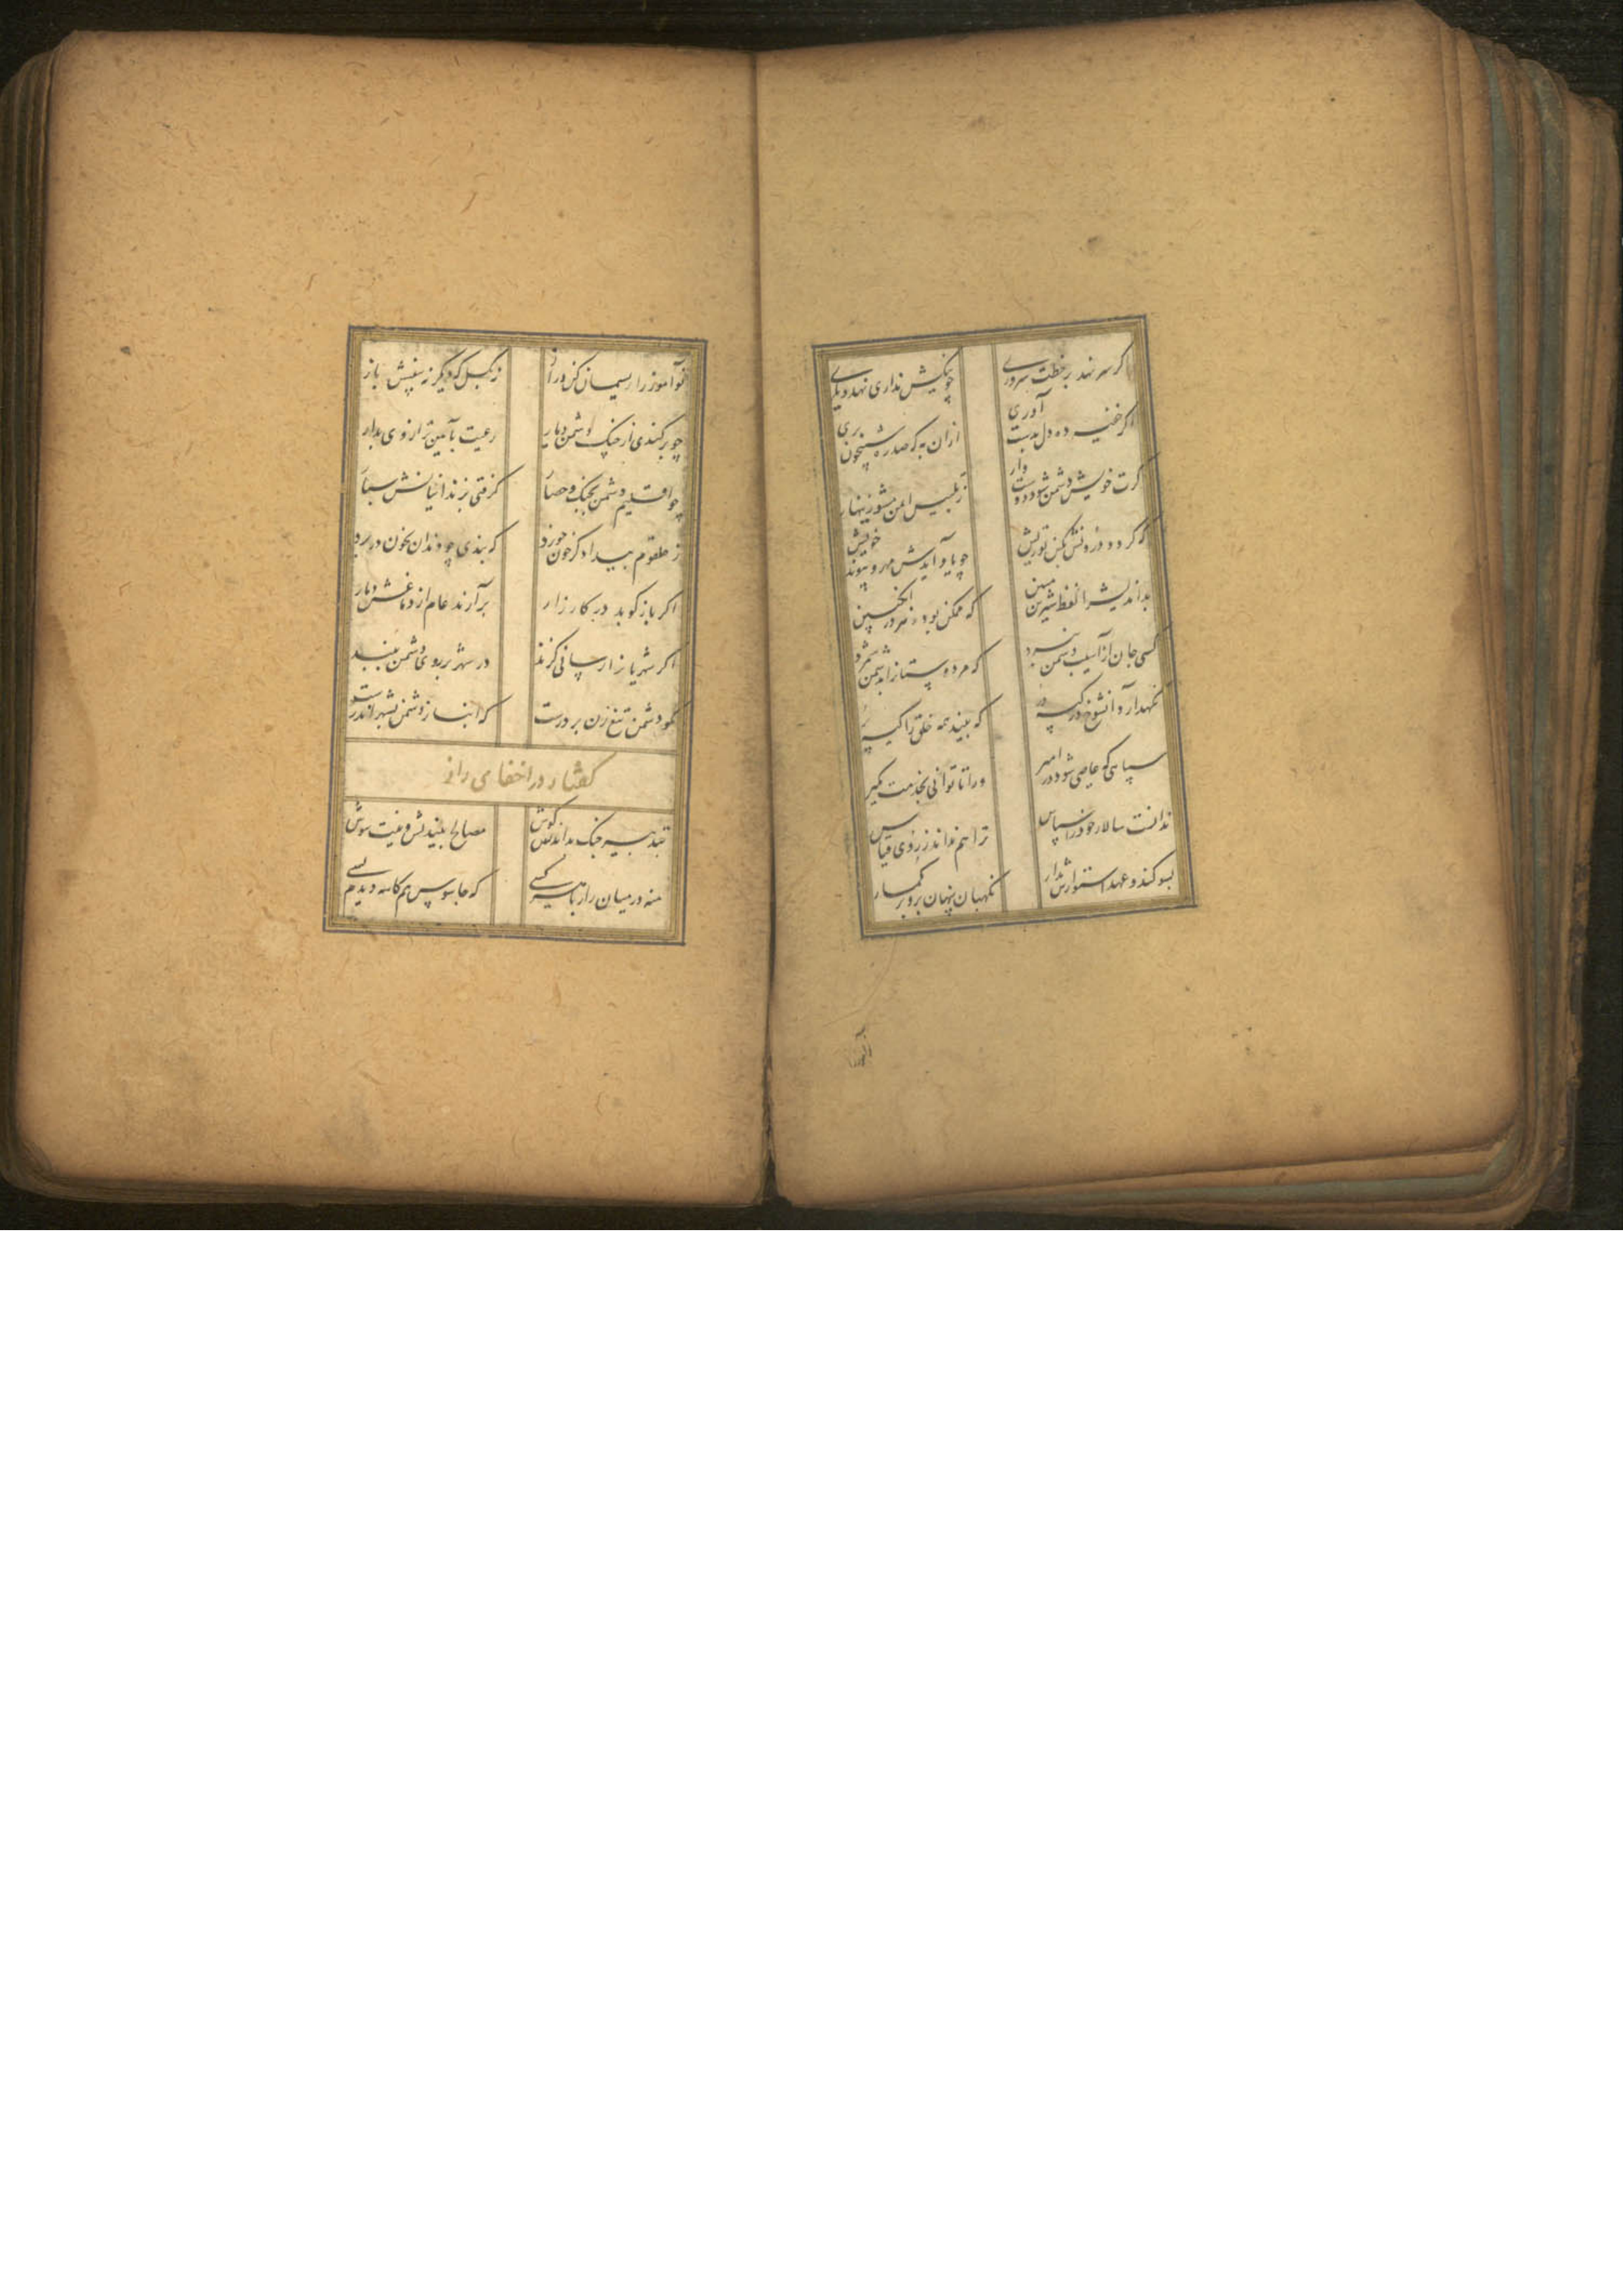 گر سر نهد بر خطت سروری
چو نیکش نداری نهد دیگری
اگر خفیه ده دل بدست آوری
ازان به که صد ره شبیخون بری
گرت خویش دشمن شود دوستدار
ز تلبیس ایمن مشو زینهار
که گردد درونش بکین تو ریش
چو یاد آیدش مهر و پیوند خویش
بداندیش را لفظ شیرین مبین
که ممکن بود زهر در انگبین
کسی جان از آسیب دشمن ببرد
که مر دوستانرا بدشمن شمرد
نگهدارد آن شوخ در کیسه در
که بیند همه خلق را کیسه بر
سپاهی که عاصی شود در امیر
ورا تا توانی بخدمت مگیر
ندانست سالار خود را سپاس
ترا هم نداند ز روی قیاس
بسوگند و عهد استوارش مدار
نگهبان پنهان برو بر گمار
نوآموز را ریسمان کن دراز
نه بگسل که دیگر نه بینیش باز
چو برکندی از چنگ دشمن دیار
رعیت بآیین تر از وی بدار
چو اقلیم دشمن بجنگ و حصار
گرفتی بزندانیانش سپار
که بندی چو دندان بخون در برد
ز حلقوم بیدادگر خون خورد
اگر باز کوبد در کارزار
برآرند عام از دماغش دمار
اگر شهریانرا رسانی گزند
در شهر بر روی دشمن مبند
مگو دشمن تیغ زن بر درست
که انباز دشمن بشهر اندرست
گفتار در اخفای رای
بتدبیر جنگ بداندیش کوش
مصالح بیندیش و نیت بپوش
منه در میان راز با هر کسی
که جاسوس هم کاسه دیدم بسی